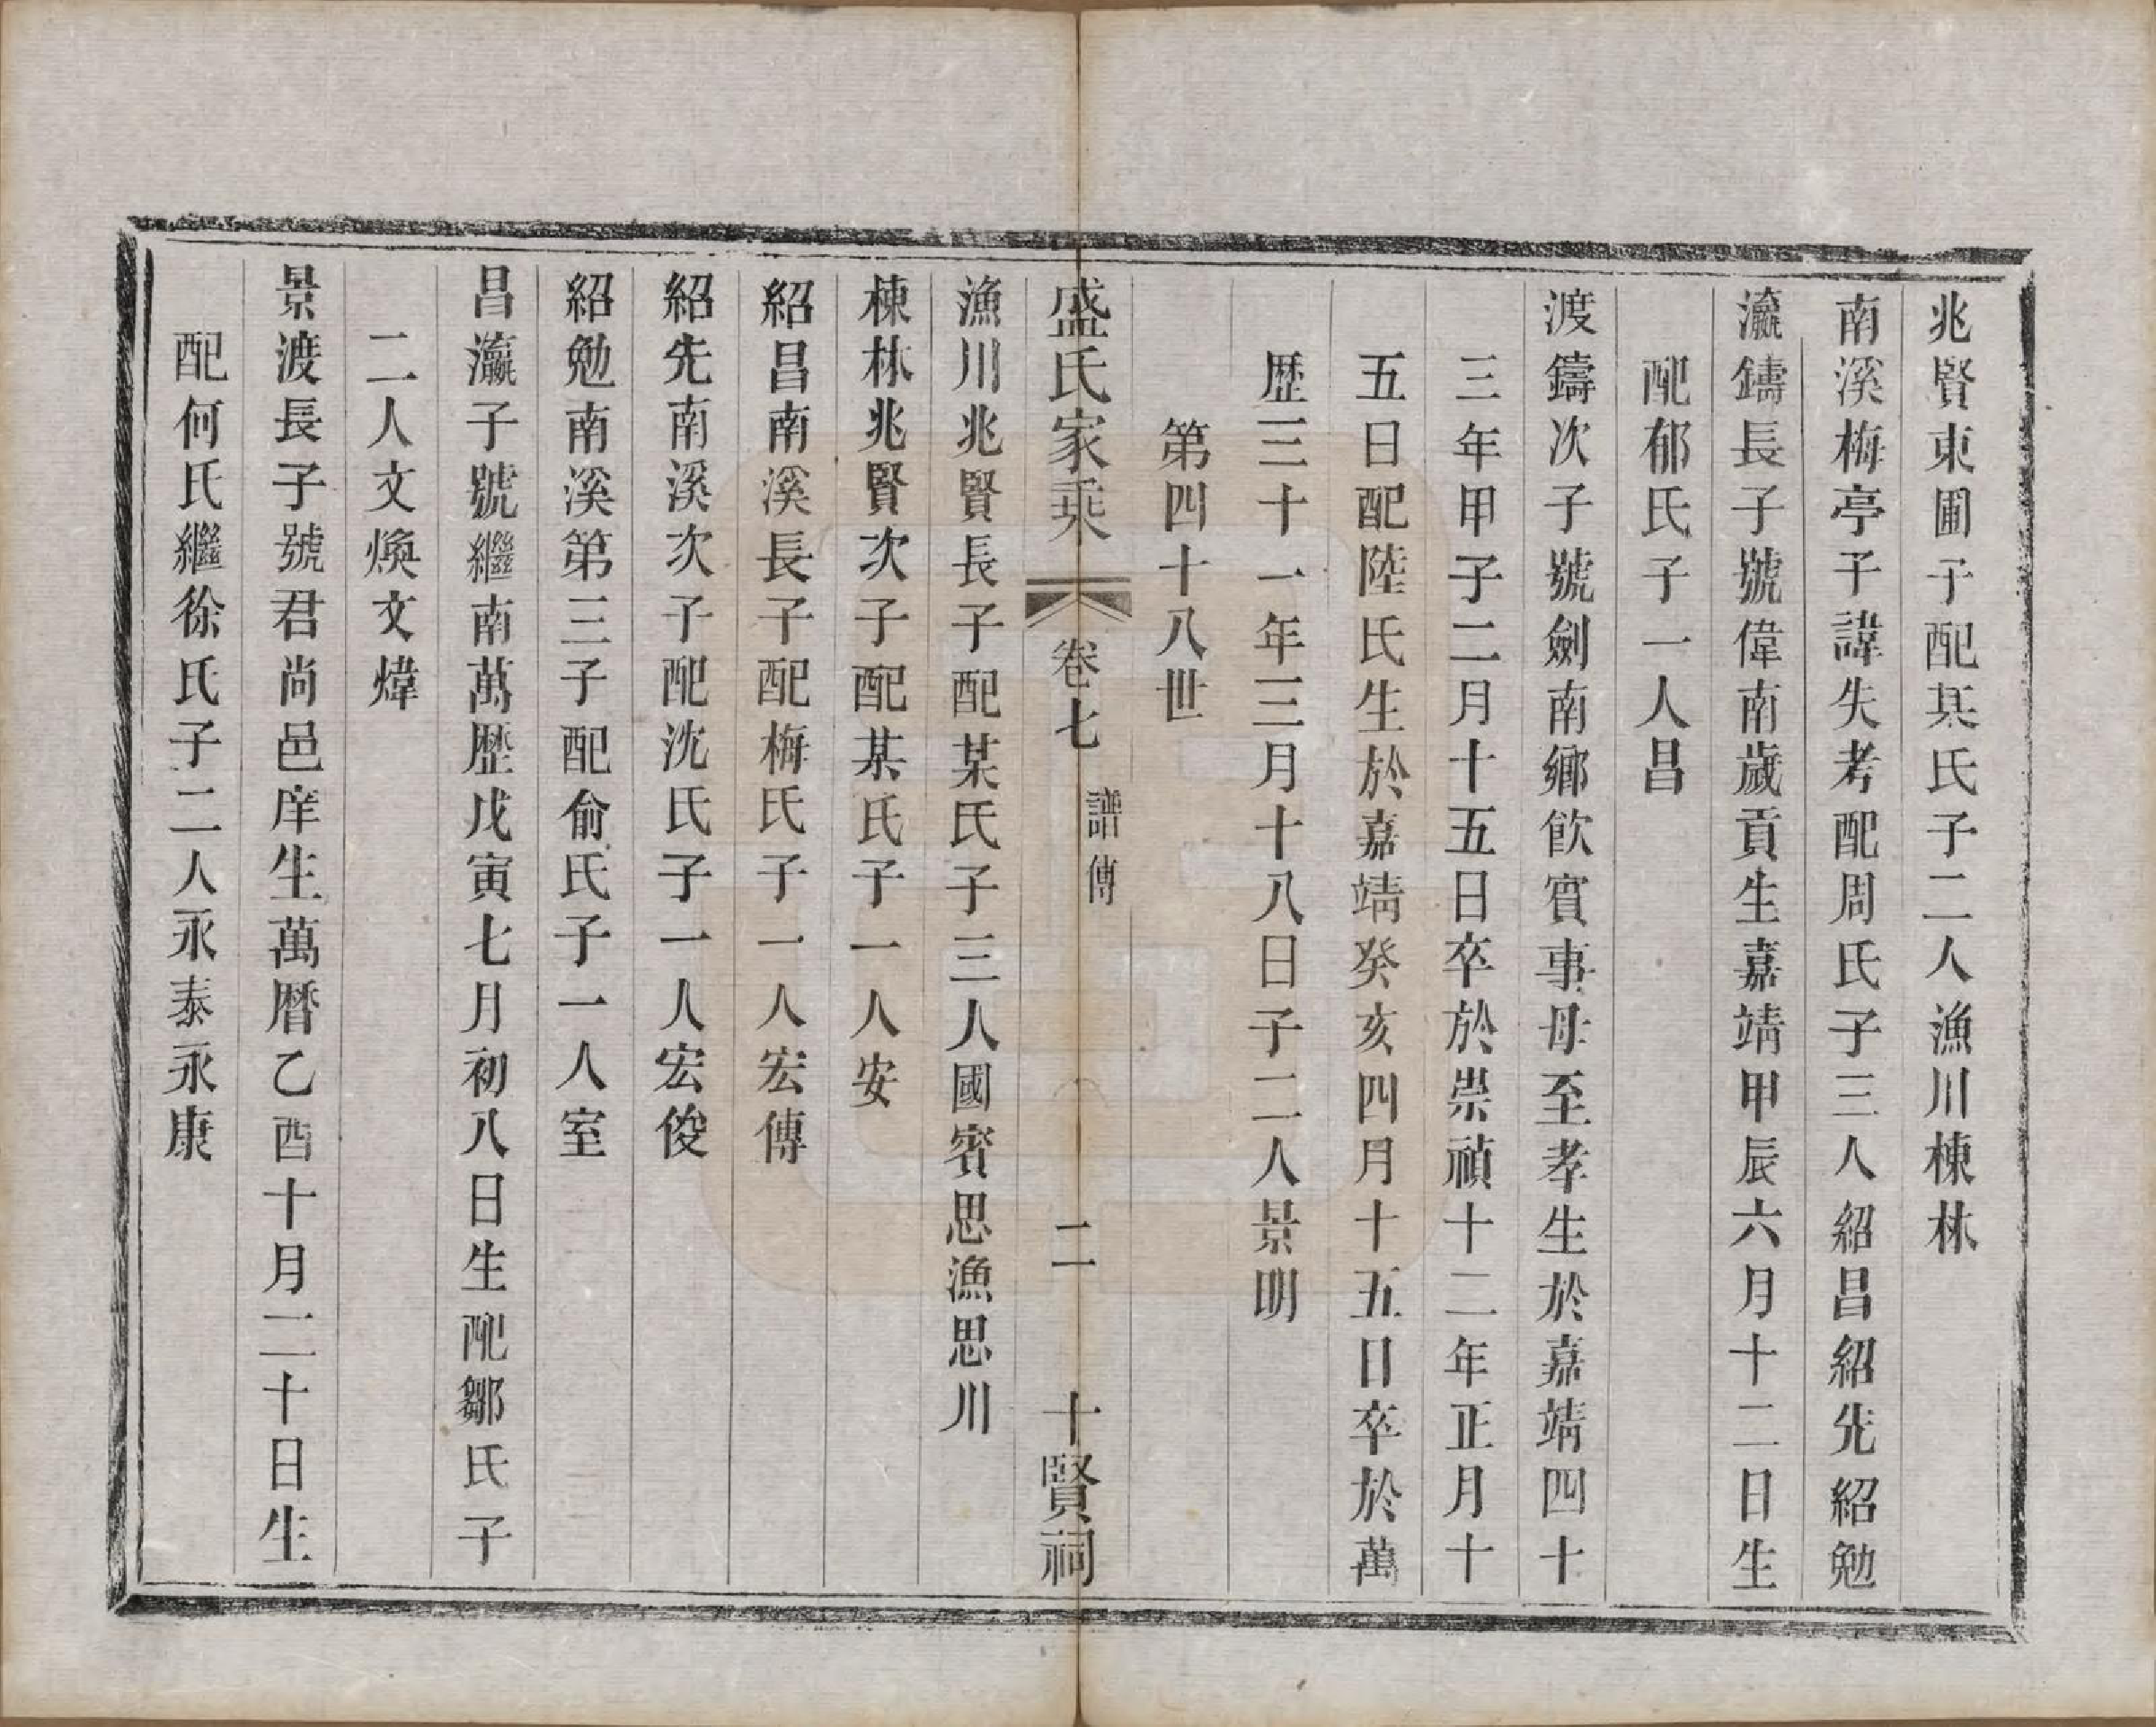 兆賢東圃子配某氏子二人漁川棟林
南溪梅亭子諱失考配周氏子三人紹昌紹先紹勉
瀛鑄長子號偉南歲貢生嘉靖甲辰六月十二日生
配郁氏子一人昌
渡鑄次子號劍南鄉飲賓事母至孝生於嘉靖四十
三年甲子二月十五日卒於崇禎十二年正月十
五日配陸氏生於嘉靖癸亥四月十五日卒於萬
歷三十一年三月十八日子二人景明
第四十八世
盛氏家乘 卷七 譜傳 二 十賢祠
漁川兆賢長子配某氏子三人國賓思漁思川
棟林兆賢次子配某氏子一人安
紹昌南溪長子配梅氏子一人宏傳
紹先南溪次子配沈氏子一人宏俊
紹勉南溪第三子配俞氏子一人室
昌瀛子號繼南萬歷戊寅七月初八日生配鄒氏子
二人文煥文煒
景渡長子號君尚邑庠生萬曆乙酉十月二十日生
配何氏繼徐氏子二人永泰永康